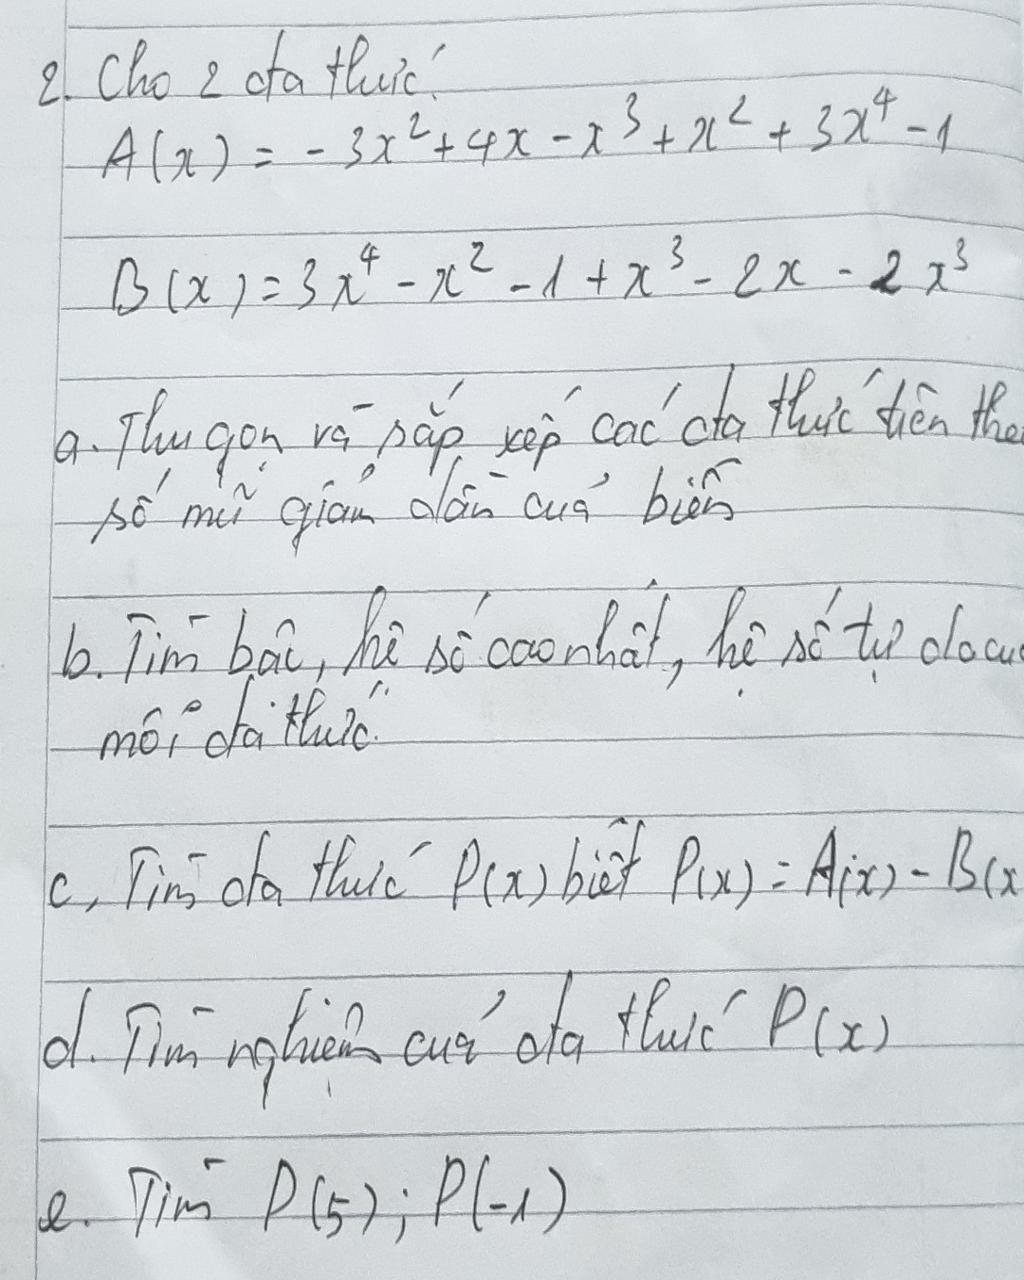 2. Cho 2 đa thức.
A(x) = -3x² + 4x - x³ + x² + 3x⁴ - 1
B(x) = 3x⁴ - x² - 1 + x³ - 2x - 2x³
a. Thu gọn và sắp xếp các đa thức trên the
số mũ giảm dần của biến
b. Tìm bậc, hệ số cao nhất, hệ số tự do củ
mỗi đa thức.
c, Tìm đa thức P(x) biết P(x) = A(x) - B(x
d. Tìm nghiệm của đa thức P(x)
e. Tìm P(5); P(-1)